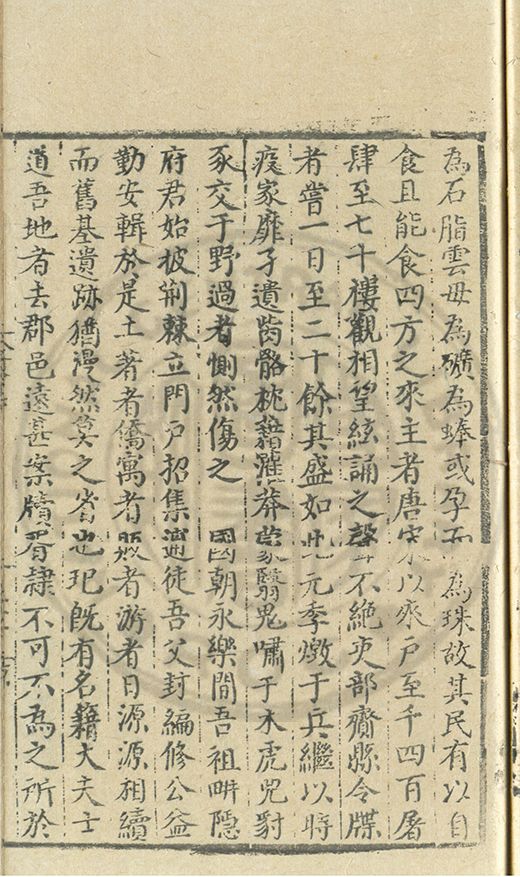 為石脂雲母為礦為蜯或孕而為珠故其民有以自
食且能食四方之來主者唐宋以來戶至千四百屠
肆至七十樓觀相望絃誦之聲不絶吏部齎縣令牒
者嘗一日至二十餘其盛如此元季燬于兵繼以時
疫家靡孑遺齒骼枕藉灌莽蒙翳鬼嘯于木虎兕豺
豕交于野過者惻然傷之 國朝永樂間吾祖畊隱
府君始披荆棘立門戶招集逋徒吾父封編修公益
勤安輯於是土著者僑寓者販者游者日源源相續
而舊基遺跡猶漫然莫之省也玘既有名籍大夫士
道吾地者去郡邑遠甚案牘胥隸不可不為之所於